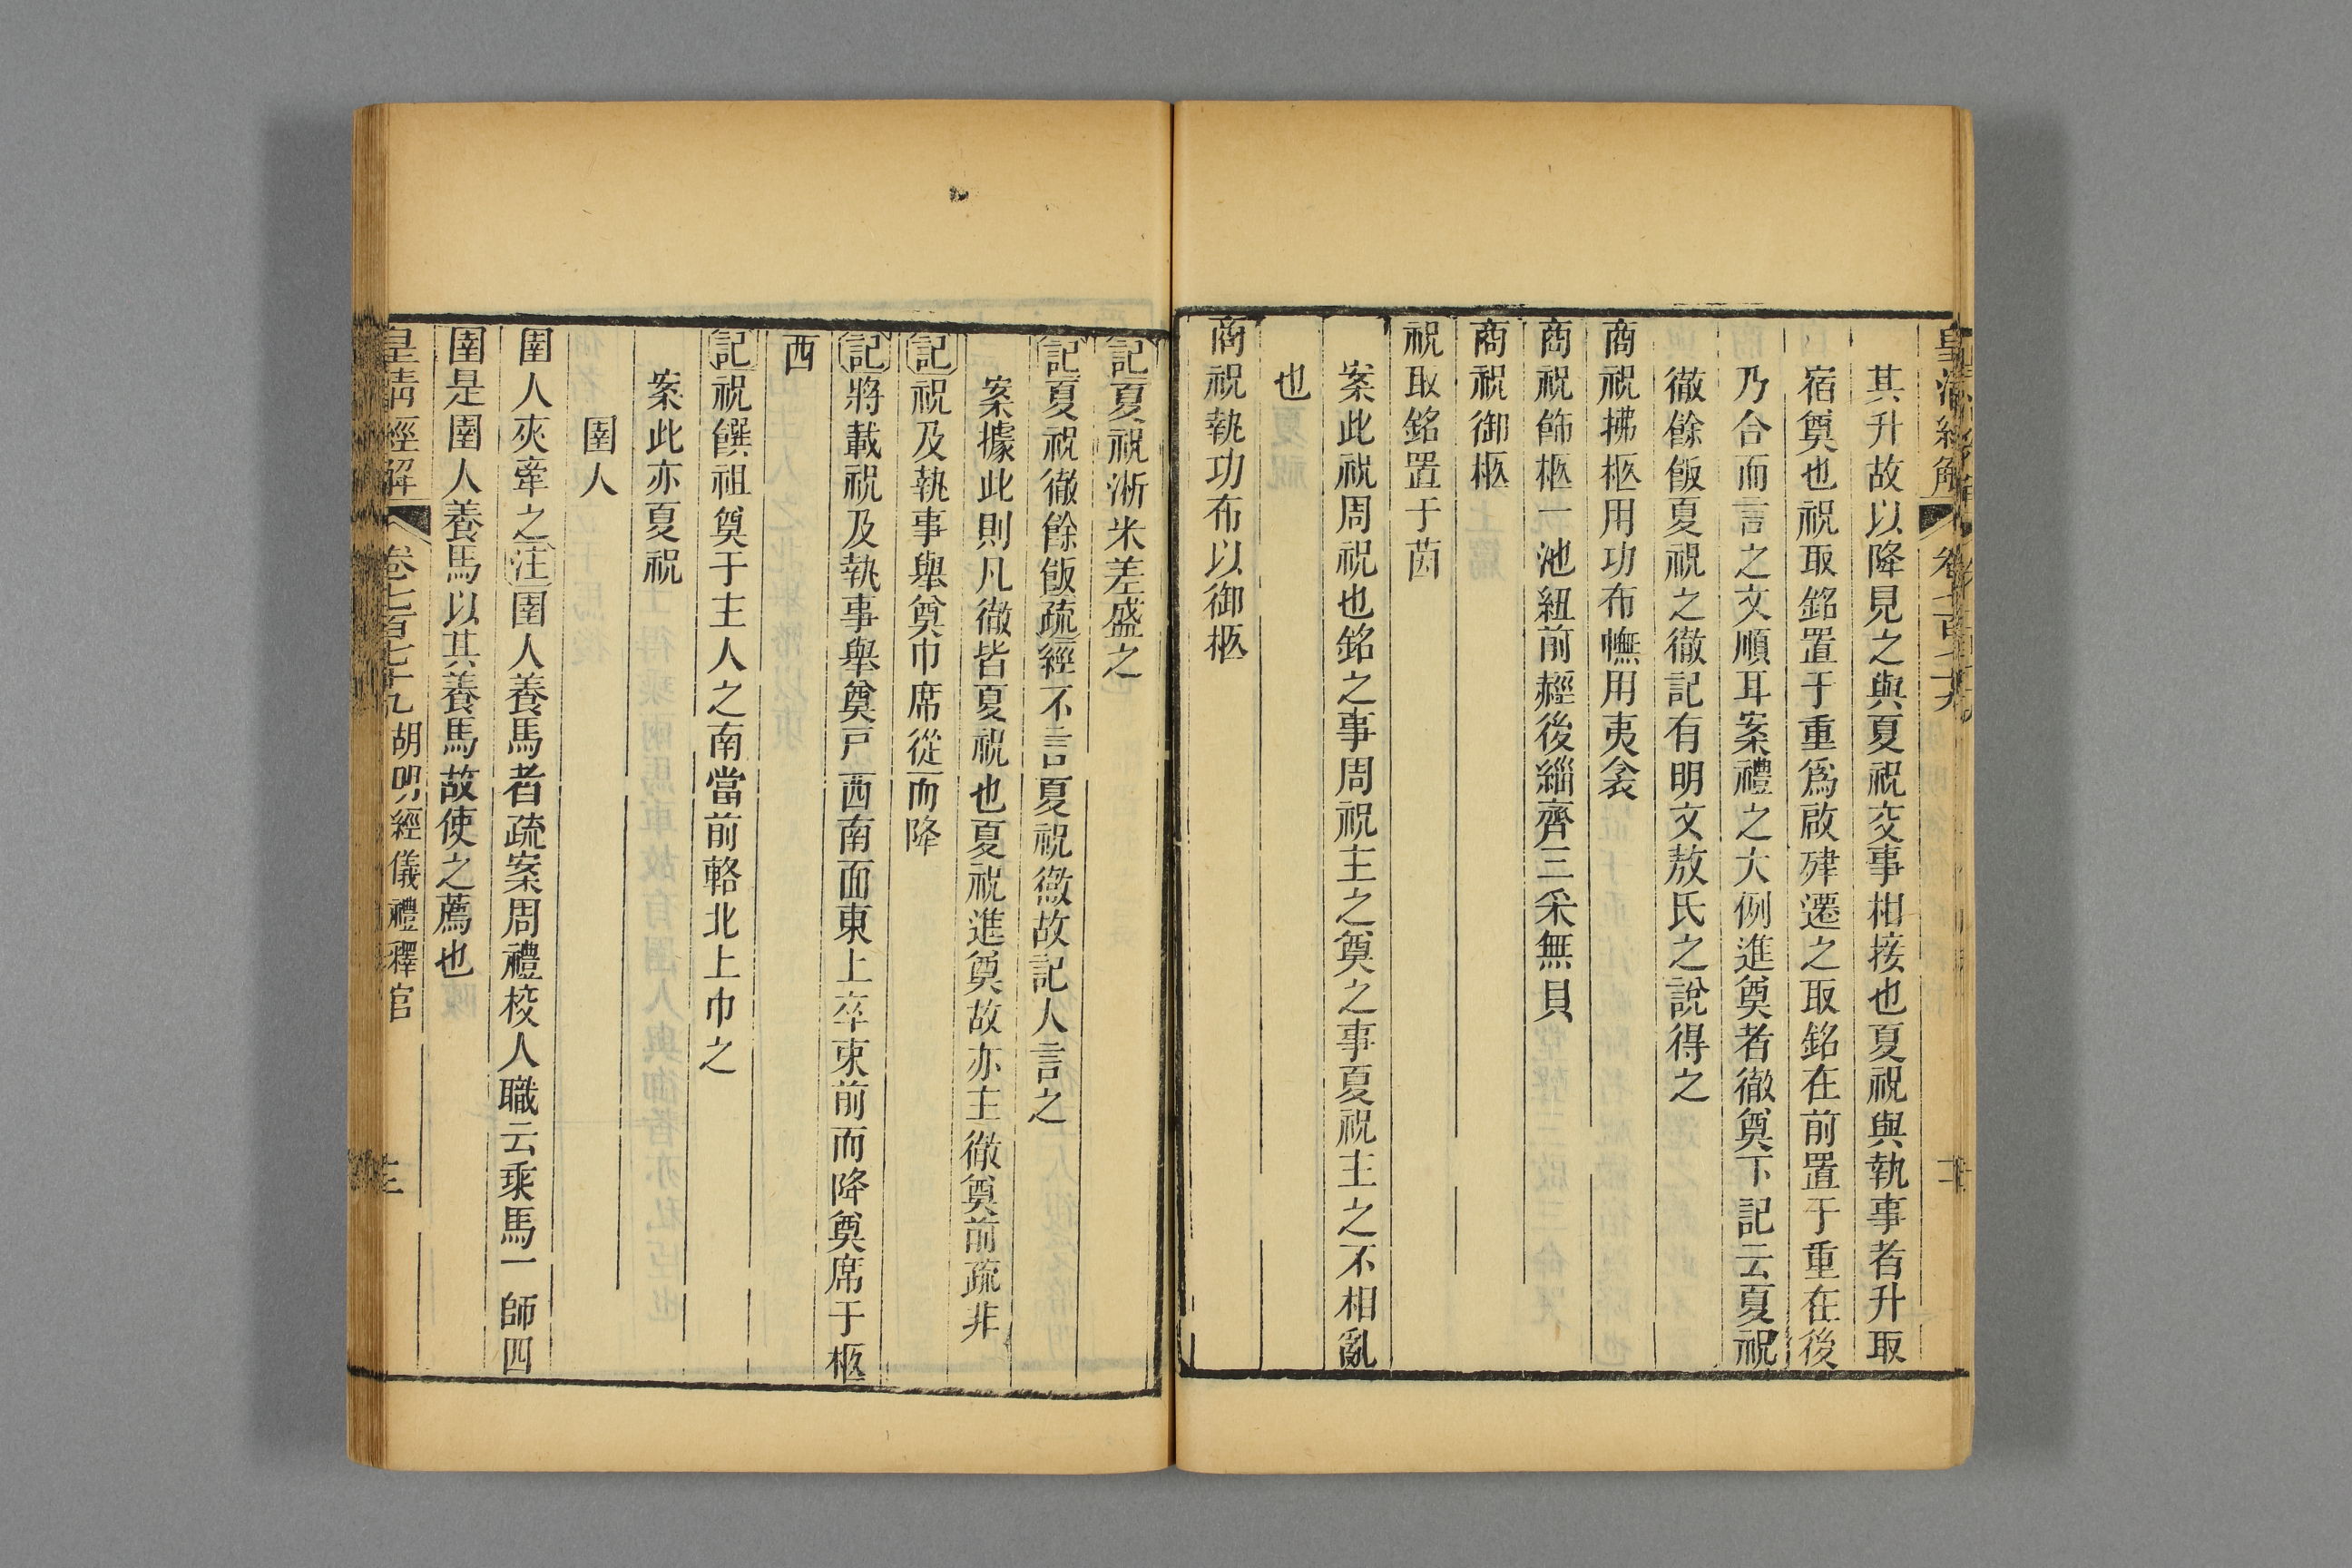 皇清經解
卷七百七十九
其升故以降見之與夏祝交事相接也夏祝與執事者升取
宿奠也祝取銘置于重爲啟殔遷之取銘在前置于重在後
乃合而言之文順耳案禮之大例進奠者徹奠下記云夏祝
徹餘飯夏祝之徹記有明文敖氏之說得之
商祝拂柩用功布幠用夷衾
商祝飾柩一池紐前䞓後緇齊三采無貝
商祝御柩
祝取銘置于茵
案此祝周祝也銘之事周祝主之奠之事夏祝主之不相亂
也
商祝執功布以御柩
記夏祝淅米差盛之
記夏祝徹餘飯疏經不言夏祝徹故記人言之
案據此則凡徹皆夏祝也夏祝進奠故亦主徹奠前疏非
記祝及執事舉奠巾席從而降
記將載祝及執事舉奠戸西南面東上卒束前而降奠席于柩
西
記祝饌祖奠于主人之南當前輅北上巾之
案此亦夏祝
圉人
圉人夾牽之注圉人養馬者疏案周禮校人職云乘馬一師四
圉是圉人養馬以其養馬故使之薦也
皇清經解
卷七百七十九
胡明經儀禮釋官